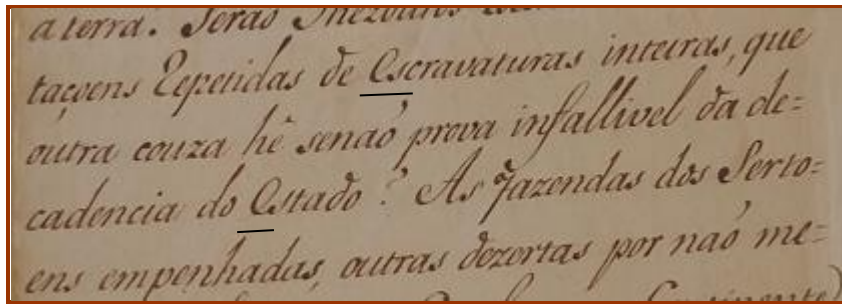 a terra. Seraõ
taçoens Repetidas de Escravaturas inteiras, que
outra couza hê senaõ prova infallivel da de=
cadencia do Estado? As Fazendas dos Serto=
ens empenhadas, outras dezertas por naõ me=